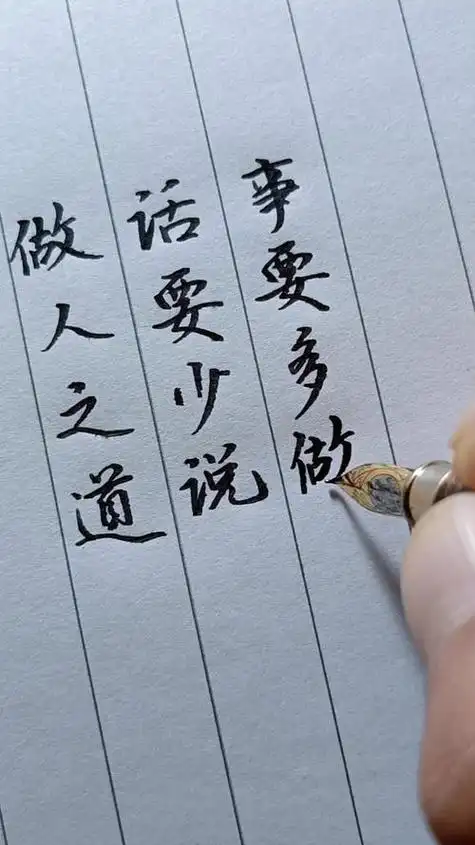 做人之道
话要少说
事要多做